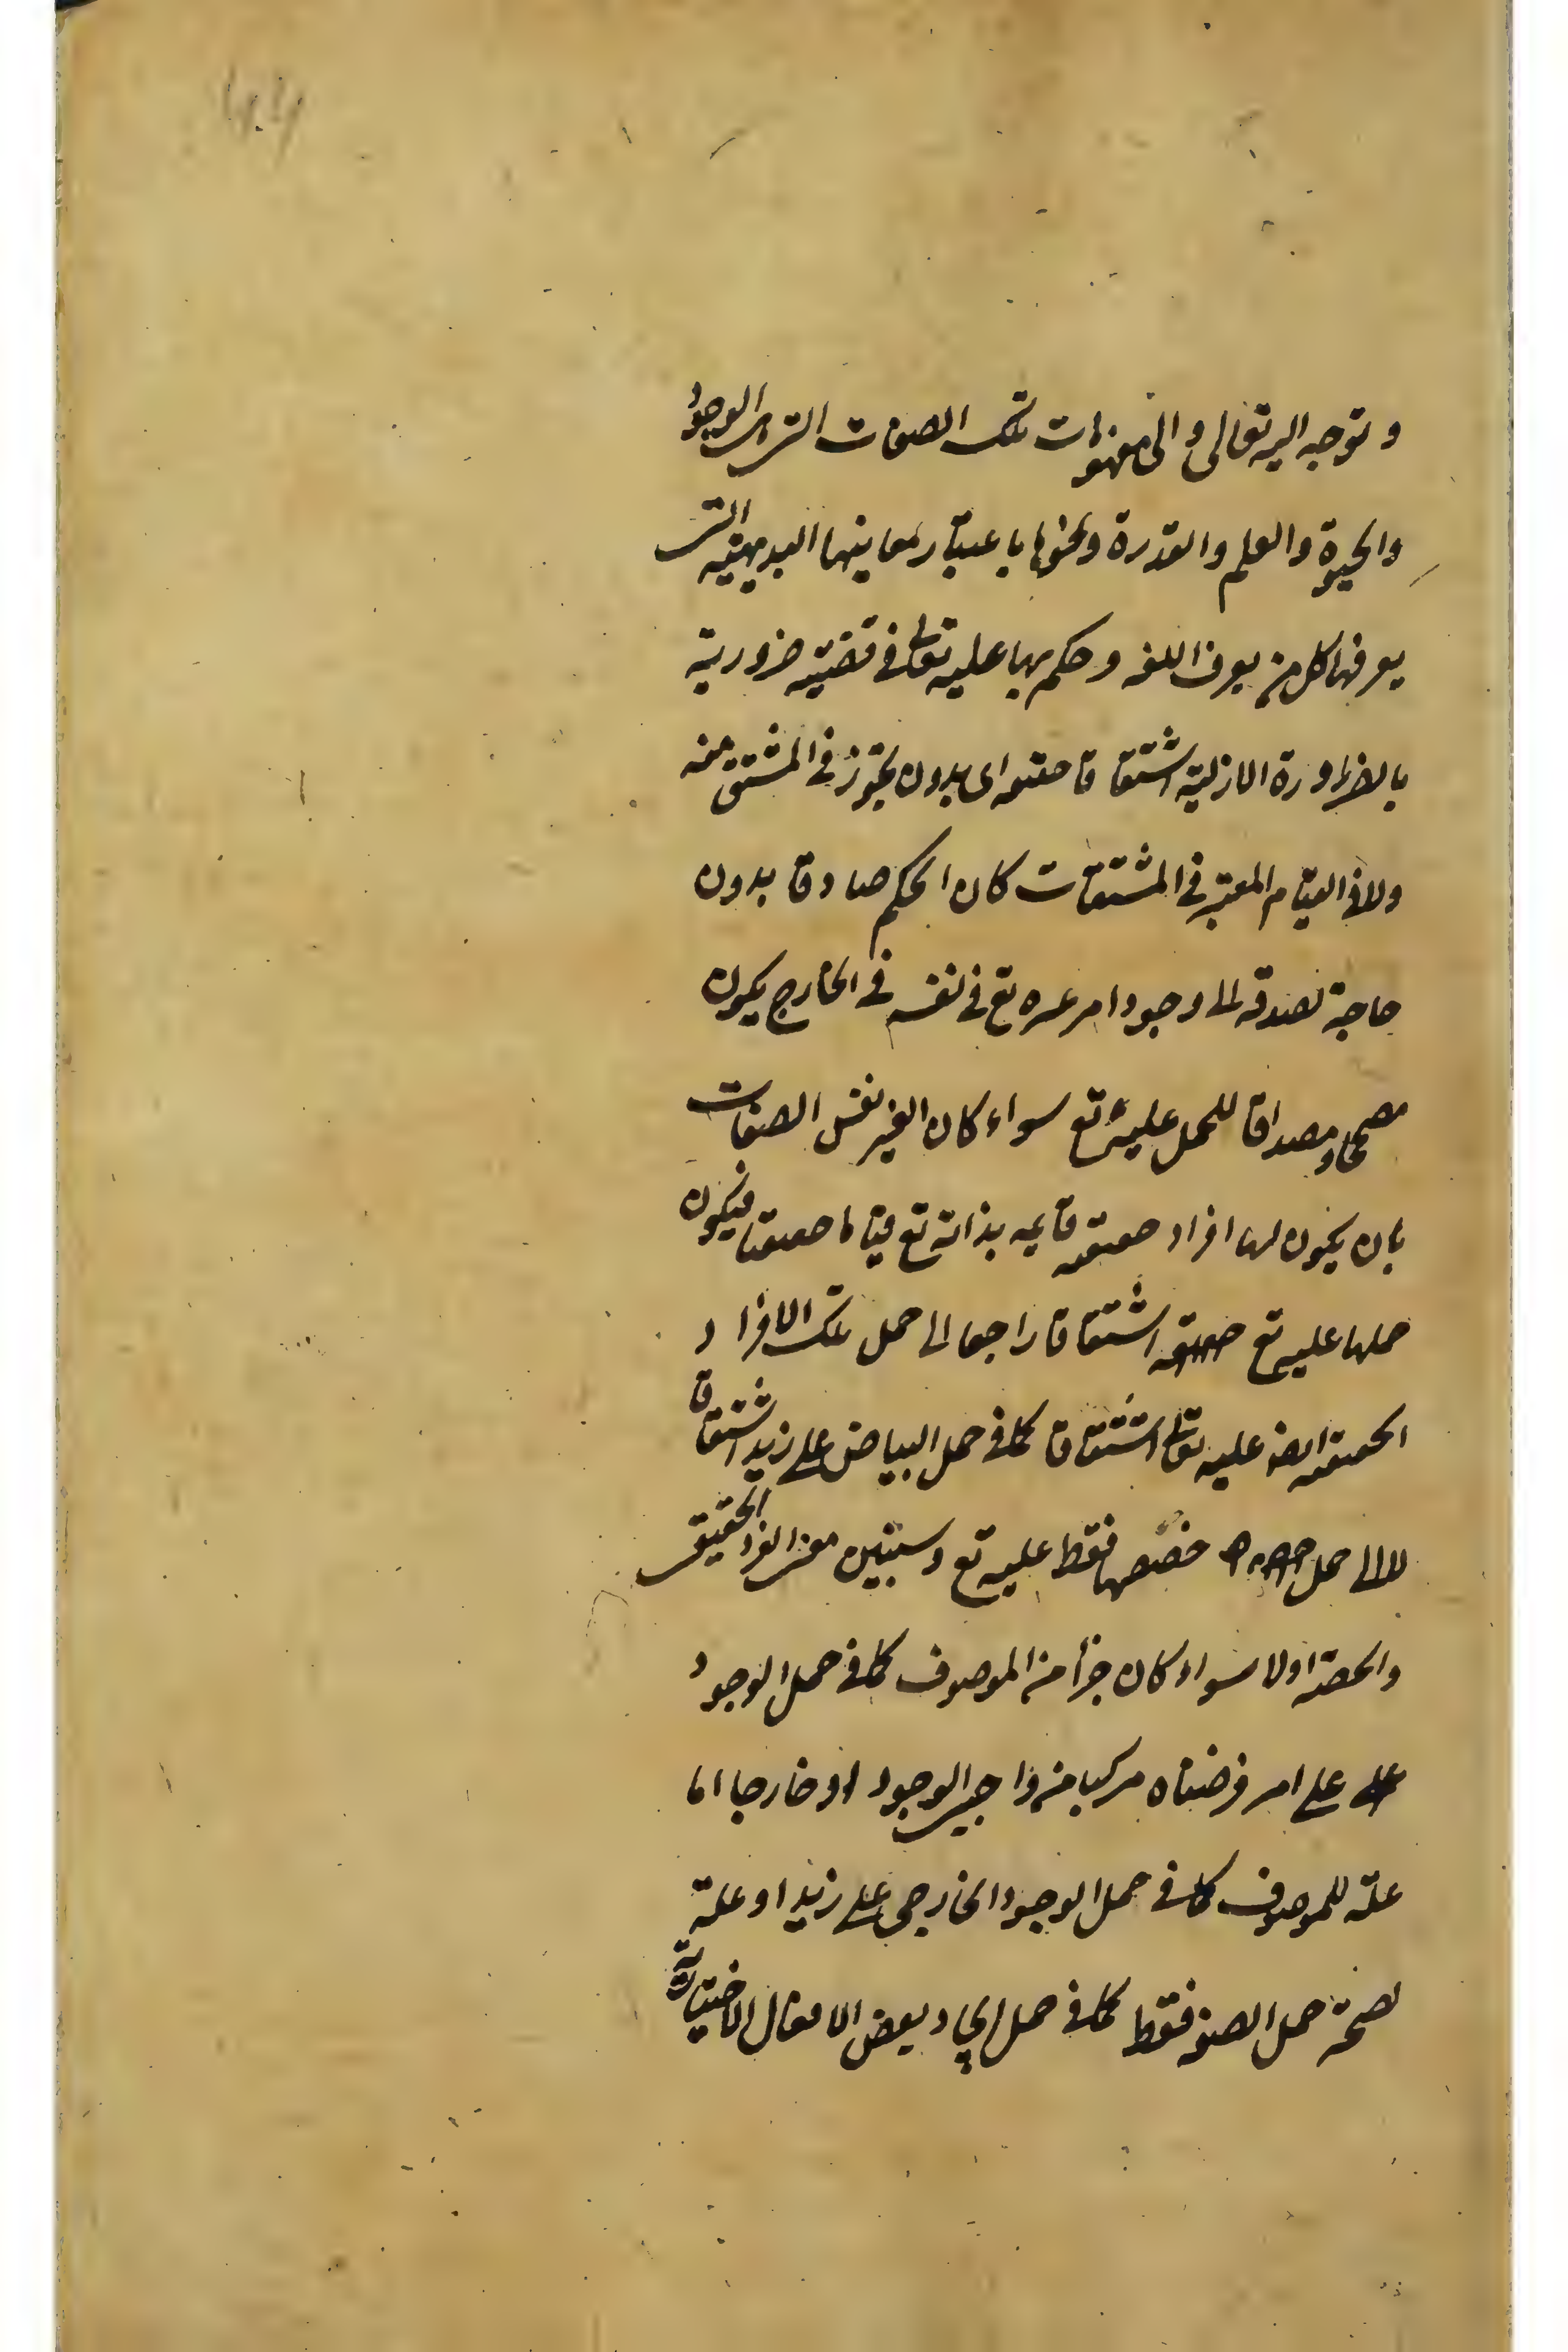 و توجه اليه تعالى و الى مفهومات تلك الصفات التى هى الوجود
والحيوة والعلم والقدرة ونحوها باعتبار معاينها البديهية التى
يعرفها كل من يعرف اللغة وحكم بها عليه تعالى فى قضية ضرورية
بالضرورة الازلية اشتقاقا حقيقة اى بدون تجوز فى المشتق منه
ولا فى القيام المعتبر فى المشتقات كان الحكم صادقا بدون
حاجة لصدقه الى وجود امر غيره تع فى نفسه فى الخارج يكون
مصححا و مصداقا للحمل عليه تع سواء كان الغير نفس الصفات
بان يكون لها افراد حقيقة قايمة بذاته تع قياما حقيقيا فيكون
حملها عليه تع حقيقة اشتقاقا راجعا الى حمل تلك الافراد
الحقيقة ايضا عليه تعالى اشتقاقا كما فى حمل البياض على زيد اشتقاقا
لا الى حمل حصصها فقط عليه تع وسيتبين معنى الفرد الحقيقى
والحصة اولا سواء كان جزأ من الموصوف كما فى حمل الوجود
على امر فرضناه مركبا من واجبى الوجود او خارجا اما
علة للموصوف كما فى حمل الوجود الخارجى على زيد او علة
لصحة حمل الصفة فقط كما فى حمل ايجاد بعض الافعال الاختيارية